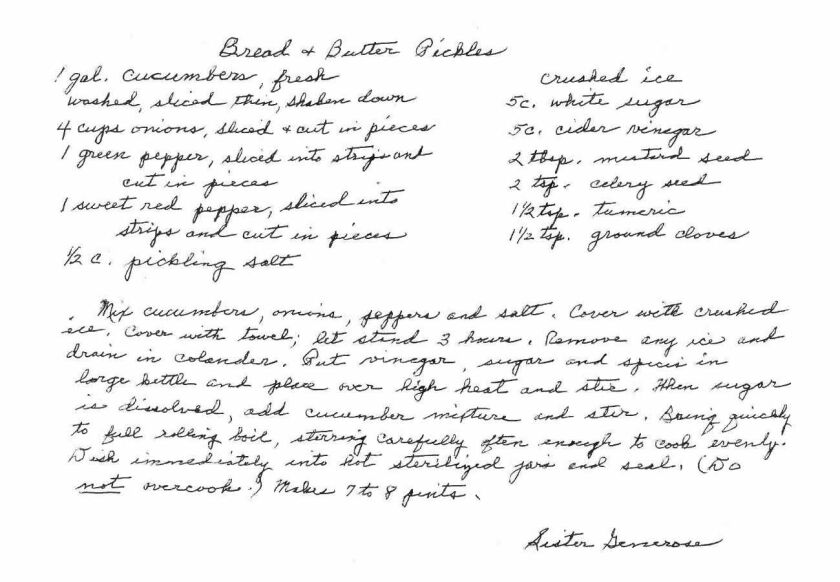 Bread + Butter Pickles
1 gal. cucumbers, fresh
washed, sliced thin, shaken down
4 cups onions, sliced + cut in pieces
1 green pepper, sliced into strips and
cut in pieces
1 sweet red pepper, sliced into
strips and cut in pieces
1/2 c. pickling salt
crushed ice
5c. white sugar
5c. cider vinegar
2 tbsp. mustard seed
2 tsp. celery seed
1 1/2 tsp. tumeric
1 1/2 tsp. ground cloves
Mix cucumbers, onions, peppers and salt. Cover with crushed
ice. Cover with towel; let stand 3 hours. Remove any ice and
drain in colander. Put vinegar, sugar and spices in
large kettle and place over high heat and stir. When sugar
is dissolved, add cucumber mixture and stir. Bring quickly
to full rolling boil, stirring carefully often enough to cook evenly.
Dish immediately into hot sterilized jars and seal. (Do
not overcook.) Makes 7 to 8 pints.
Sister Generose